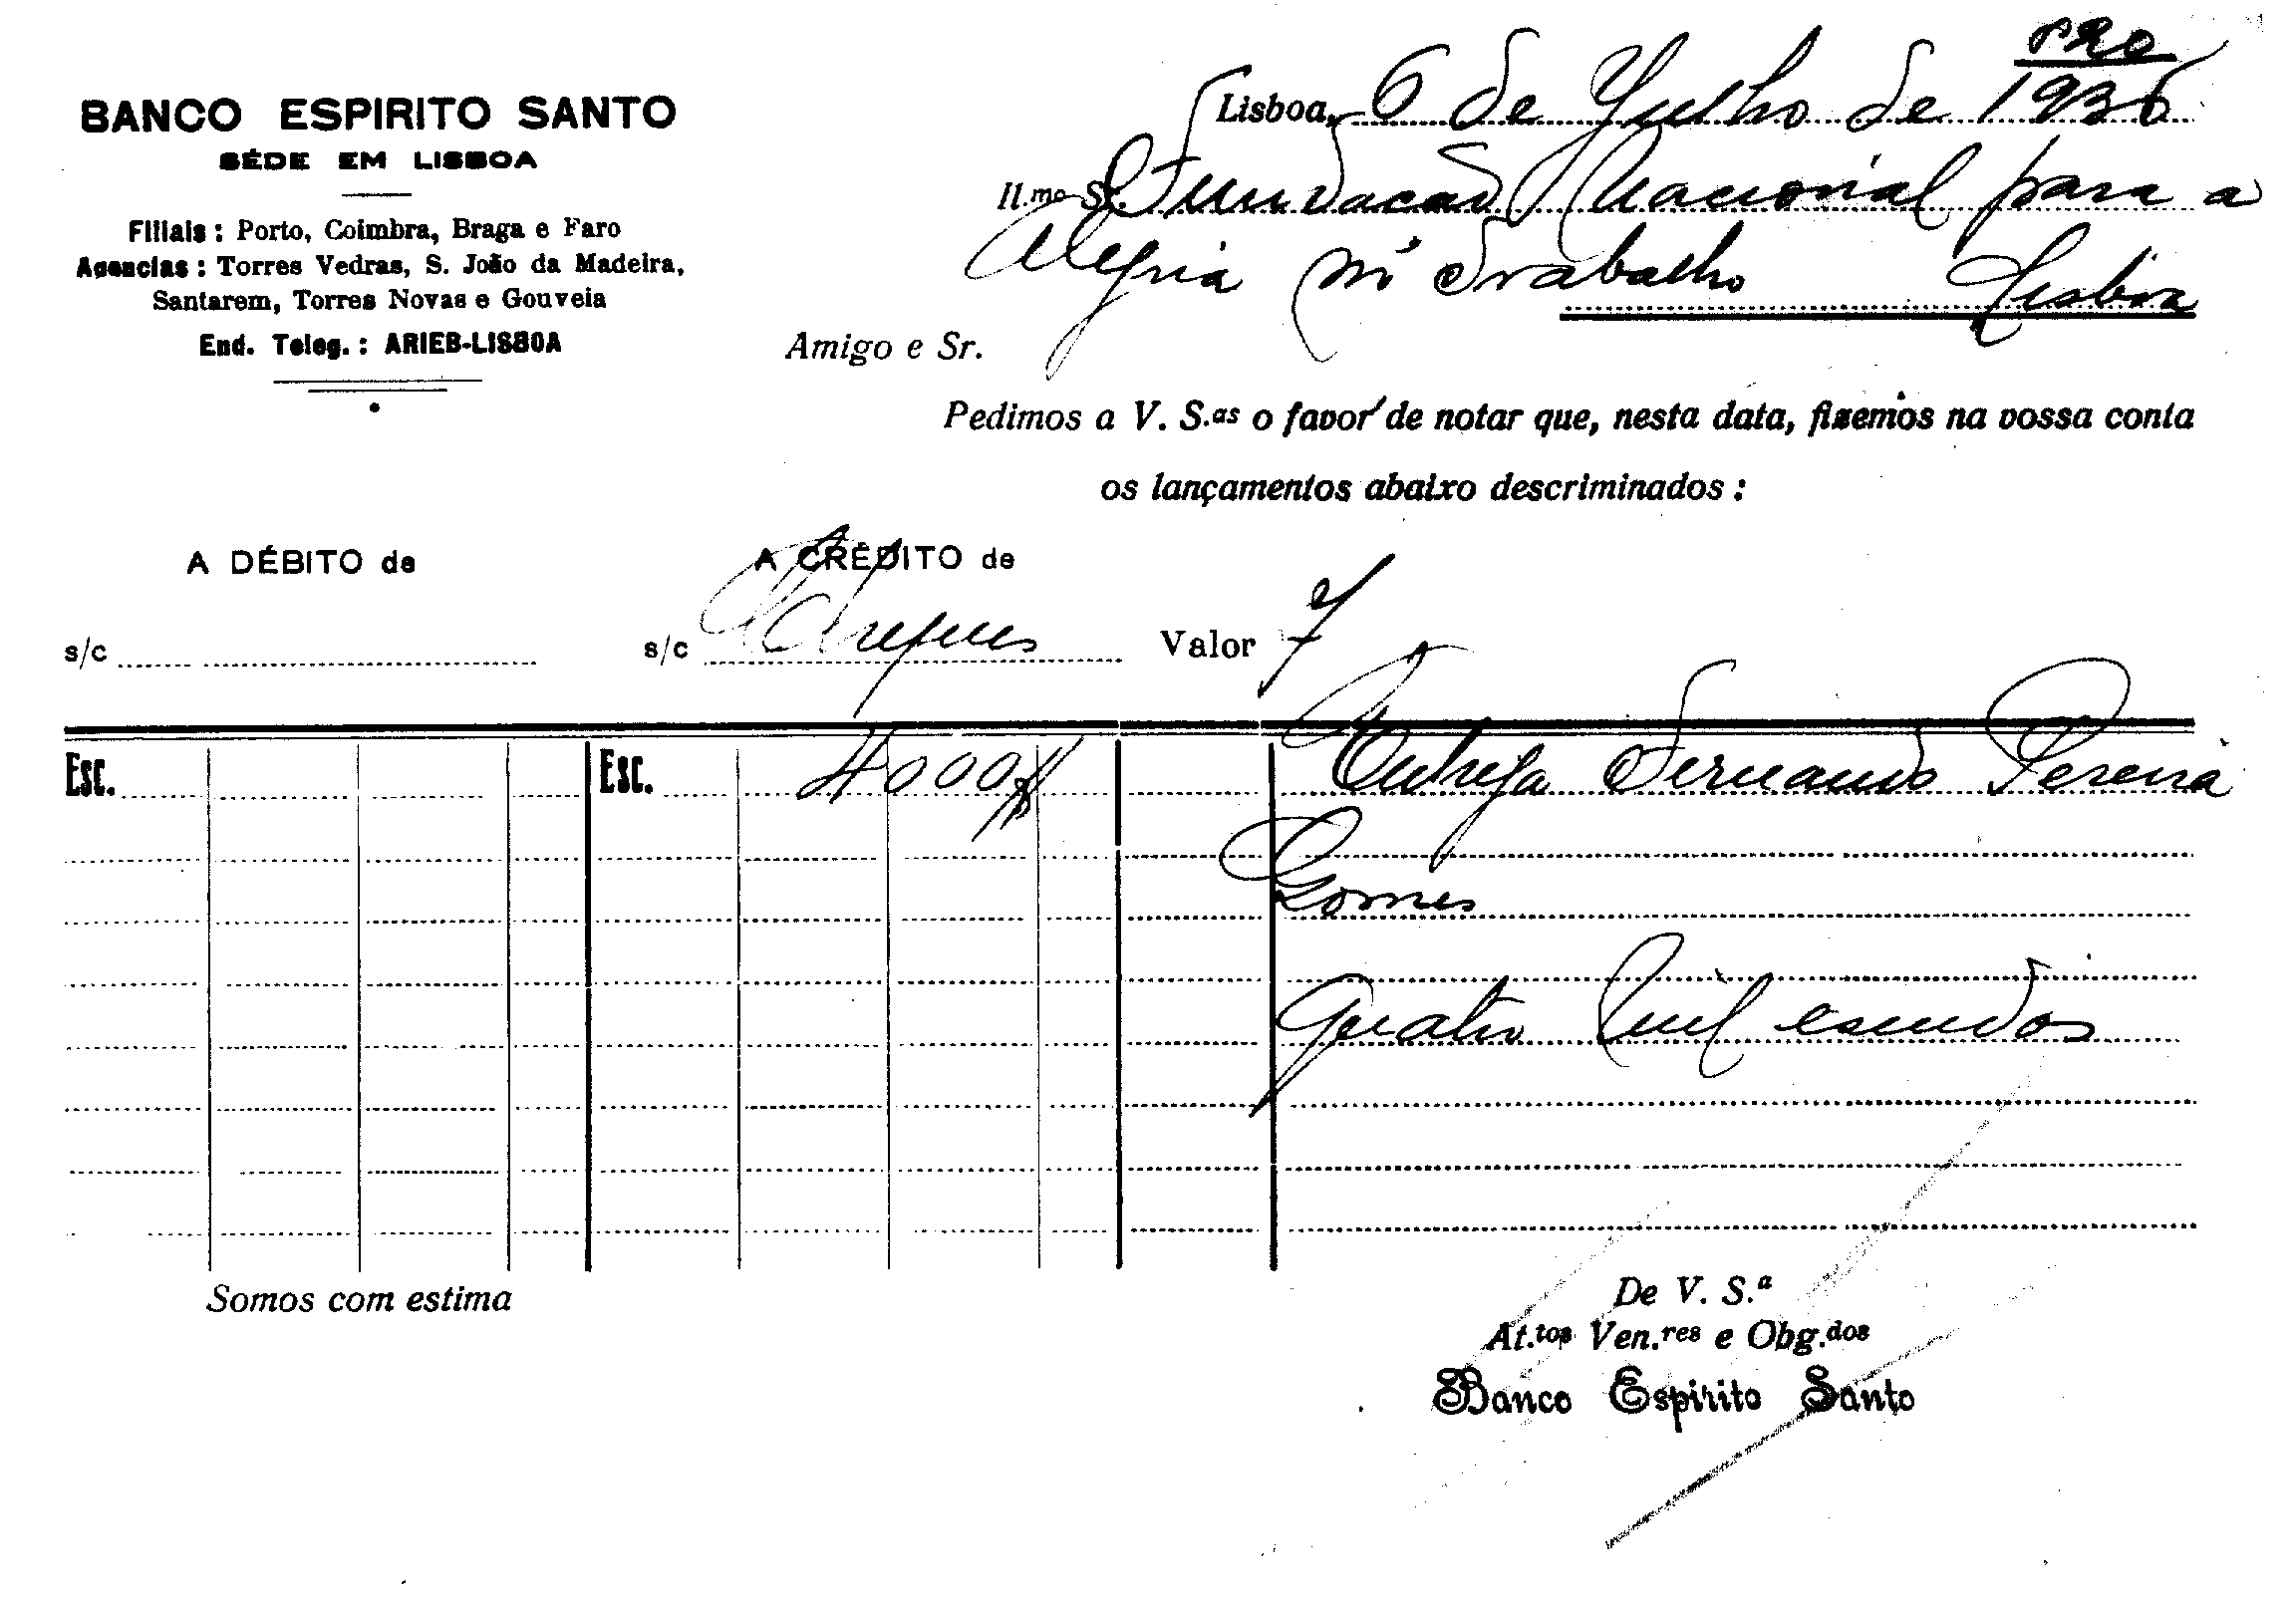 BANCO ESPIRITO SANTO
SÉDE EM LISBOA
Filiais: Porto, Coimbra, Braga e Faro
Agencias: Torres Vedras, S. João da Madeira,
Santarem, Torres Novas e Gouveia
End. Teleg.: ARIEB-LISBOA
Lisboa, 6 de Julho de 1936
Il.mo Sr. Fundacão Nacional para a
Alegria no Trabalho Lisboa
Amigo e Sr.
Pedimos a V. S.as o favor de notar que, nesta data, fizemos na vossa conta
os lançamentos abaixo descriminados:
A DÉBITO de
A CRÉDITO de
s/c
s/c Cheques Valor 7
Esc. Esc. 4000$ Entrega Fernando Pereira
Gomes
Quatro mil escudos
Somos com estima
De V. S.a
At.tos Ven.res e Obg.dos
Banco Espirito Santo